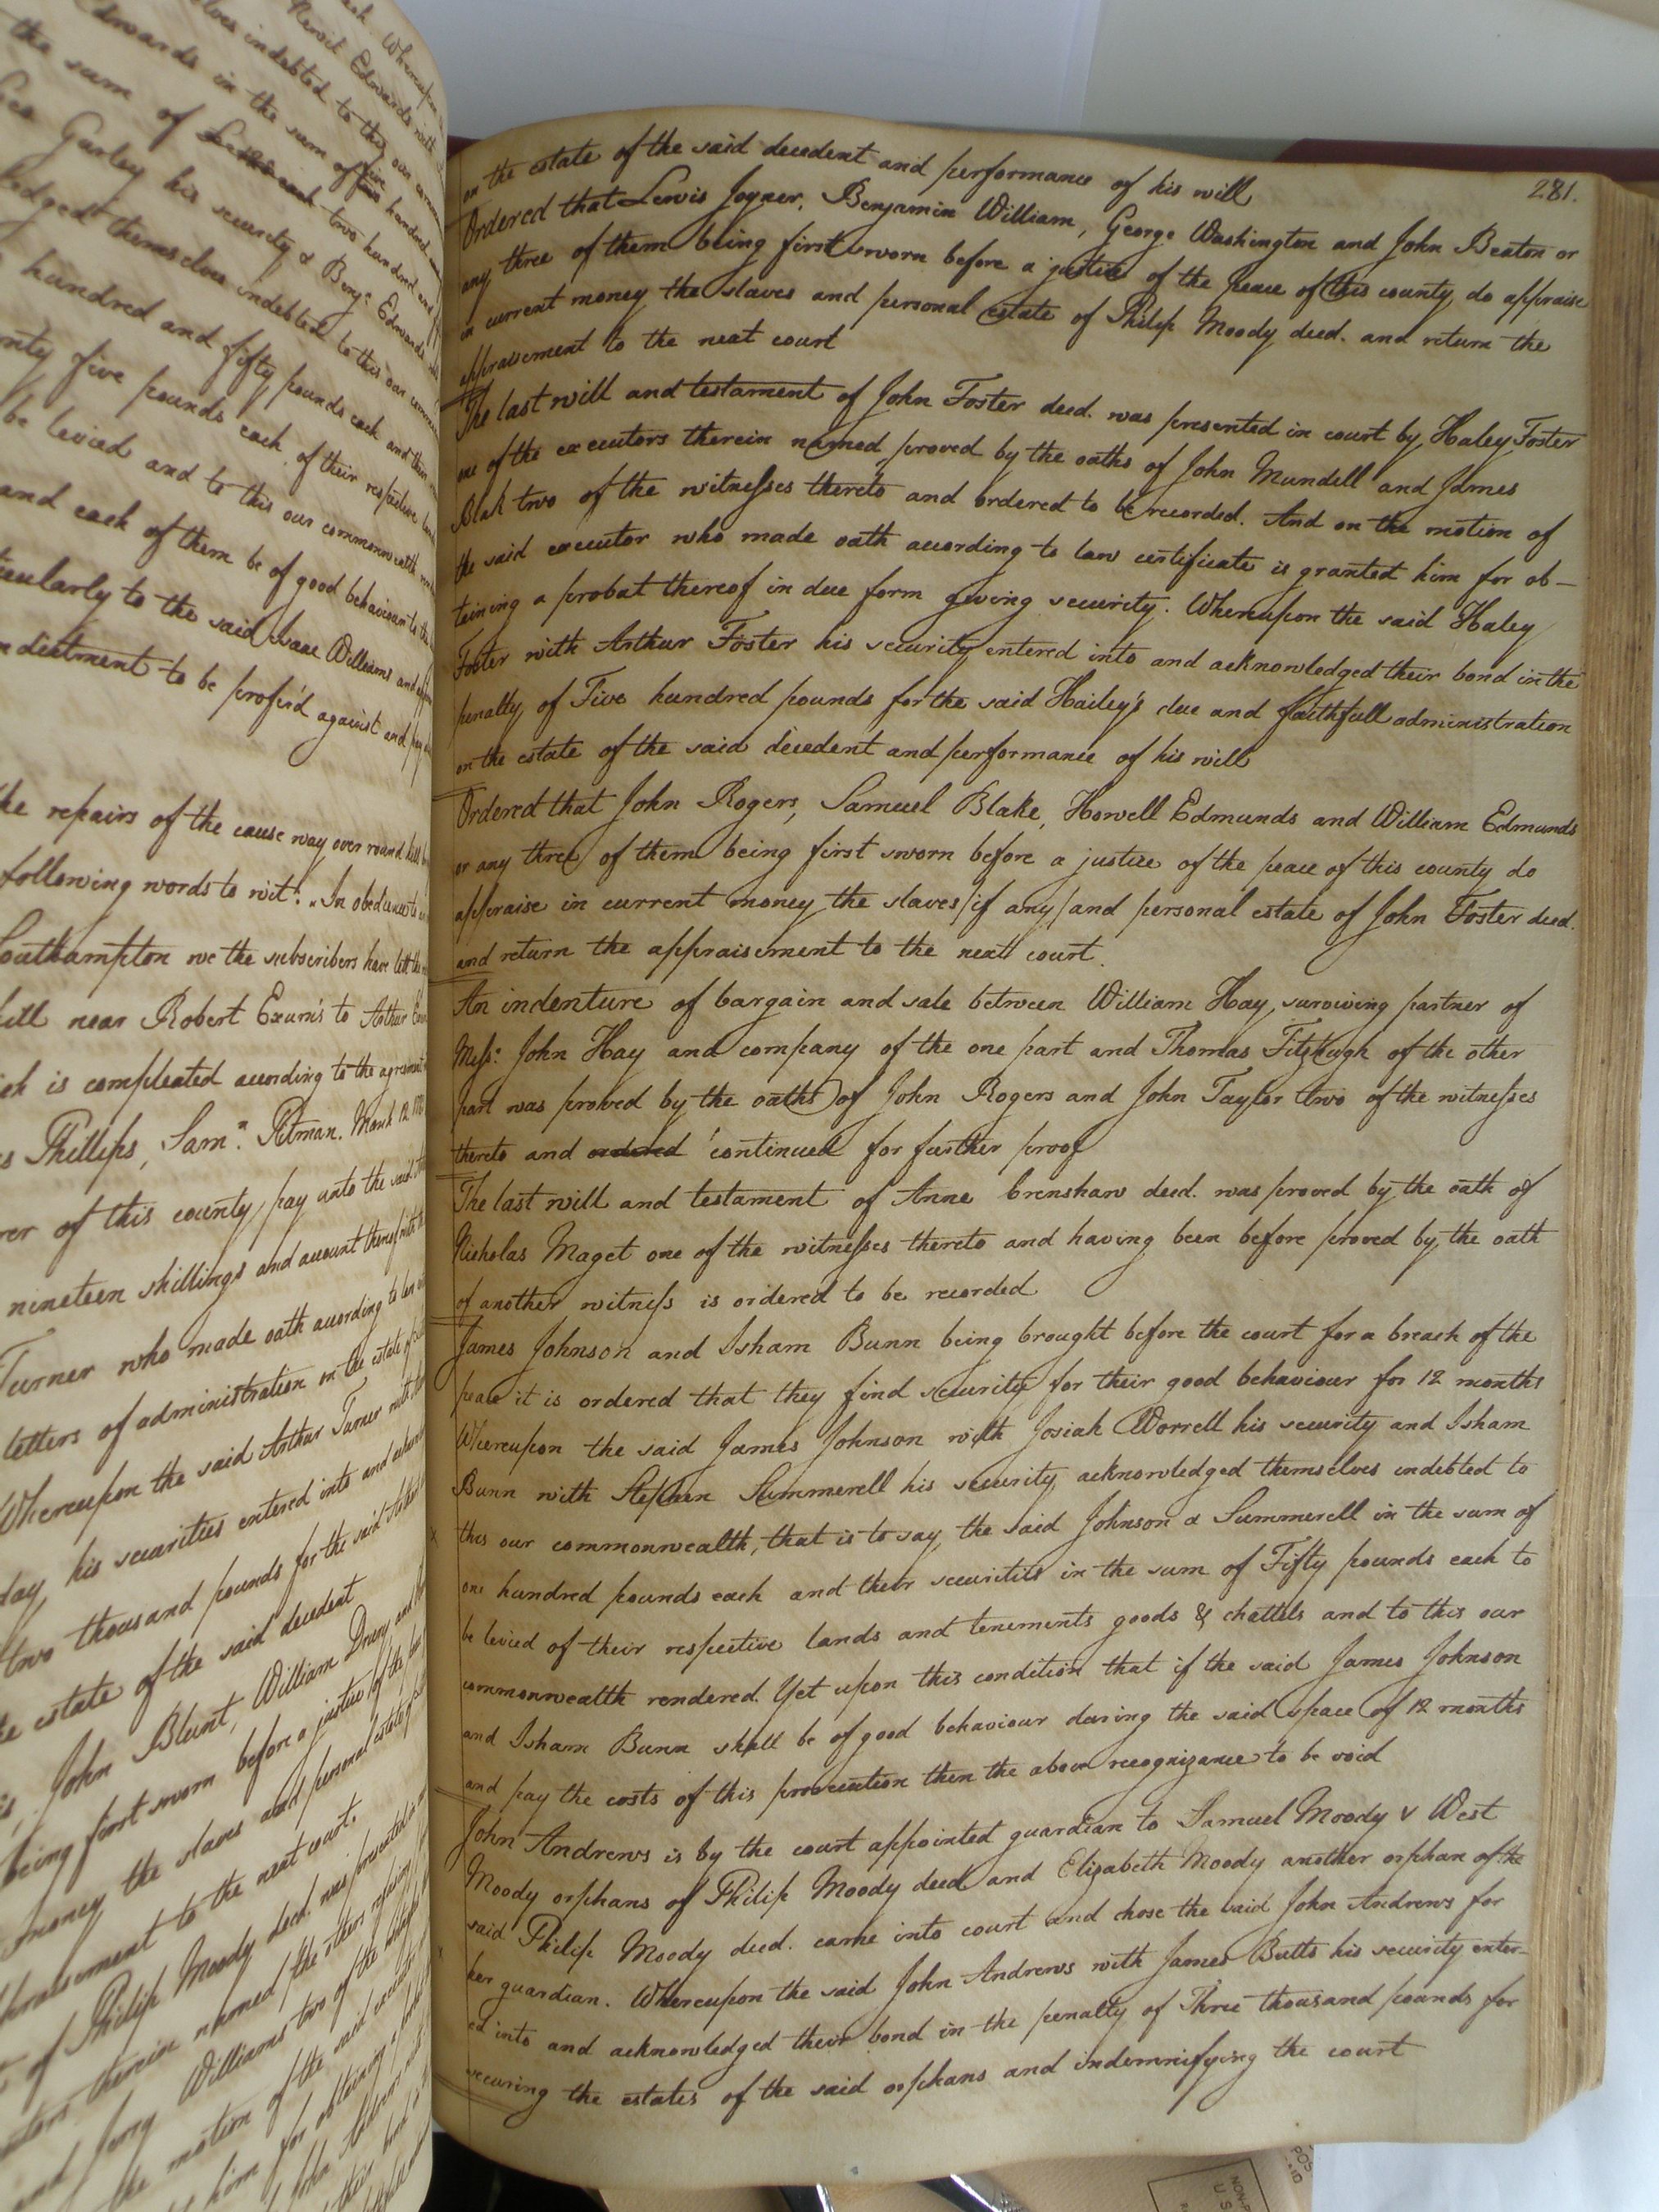 eek. Whereupon
Kerril Edwards with
elves indebted to this our common
Edwards in the sum of five hundred
the sum of two hundred and
Geo. Gurley his security & Benja. Edwards
ledged themselves indebted to this our common
hundred and fifty pounds each and their
nty five pounds each of their respective lands
be levied and to this our commonwealth
and each of them be of good behaviour to the
ticularly to the said Isaac Williams and
ndictment to be prefer'd against and pay
the repairs of the cause way over round hill
following words to wit: "In obedience to
Southampton we the subscribers have lett the
hill near Robert Exum's to Arthur
ich is compleated according to the agreement
s Phillips, Saml. Pitman. March 12
rer of this county pay unto the said
nineteen shillings and account
Turner who made oath according to law
letters of administration on the estate of
Whereupon the said Arthur Turner with
day his securities entered into and
two thousand pounds for the said
he estate of the said decedent
John Blunt, William Drury and
being first sworn before a justice of the
money the slaves and personal estate of
ppraisement to the next court.
of Philip Moody decd. was presented in
cutors therein named (the others refusing
and Williams two of the
the motion of the said executor
him for obtaining a
281.
on the estate of the said decedent and performance of his will
Ordered that Lewis Joyner, Benjamin William, George Washington and John Beaton or
any three of them being first sworn before a justice of the peace of this county do appraise
in current money the slaves and personal estate of Philip Moody decd. and return the
appraisement to the next court
The last will and testament of John Foster decd. was presented in court by Haley Foster
one of the executors therein named proved by the oaths of John Mundell and James
Blak two of the witnesses thereto and ordered to be recorded. And on the motion of
the said executor who made oath according to law certificate is granted him for ob-
teining a probat thereof in due form giving security. Whereupon the said Haley
Foster with Arthur Foster his security entered into and acknowledged their bond in the
penalty of Five hundred pounds for the said Hailey's due and faithfull administration
on the estate of the said decedent and performance of his will
Ordered that John Rogers, Samuel Blake, Howell Edmunds and William Edmunds
or any three of them being first sworn before a justice of the peace of this county do
appraise in current money the slaves/if any/and personal estate of John Foster decd.
and return the appraisement to the next court.
An indenture of bargain and sale between William Hay surviving partner of
Messs. John Hay and company of the one part and Thomas Fitzhugh of the other
part was proved by the oaths of John Rogers and John Taylor two of the witnesses
thereto and ordered continued for further proof
The last will and testament of Anne Crenshaw decd. was proved by the oath of
Nicholas Maget one of the witnesses thereto and having been before proved by the oath
of another witness is ordered to be recorded
James Johnson and Isham Bunn being brought before the court for a breach of the
peace it is ordered that they find security for their good behaviour for 12 months
Whereupon the said James Johnson with Josiah Worrell his security and Isham
Bunn with Stephen Summerell his security acknowledged themselves indebted to
this our commonwealth, that is to say, the said Johnson & Summerell in the sum of
one hundred pounds each and their securities in the sum of Fifty pounds each to
be levied of their respective lands and tenements goods & chattels and to this our
commonwealth rendered. Yet upon this condition that if the said James Johnson
and Isham Bunn shall be of good behaviour during the said space of 12 months
and pay the costs of this prosecution then the above recognizance to be void
John Andrews is by the court appointed guardian to Samuel Moody & West
Moody orphans of Philip Moody decd and Elizabeth Moody another orphan of the
said Philip Moody decd. came into court and chose the said John Andrews for
her guardian. Whereupon the said John Andrews with James Butts his security enter-
ed into and acknowledged their bond in the penalty of Three thousand pounds for
securing the estates of the said orphans and indemnifying the court